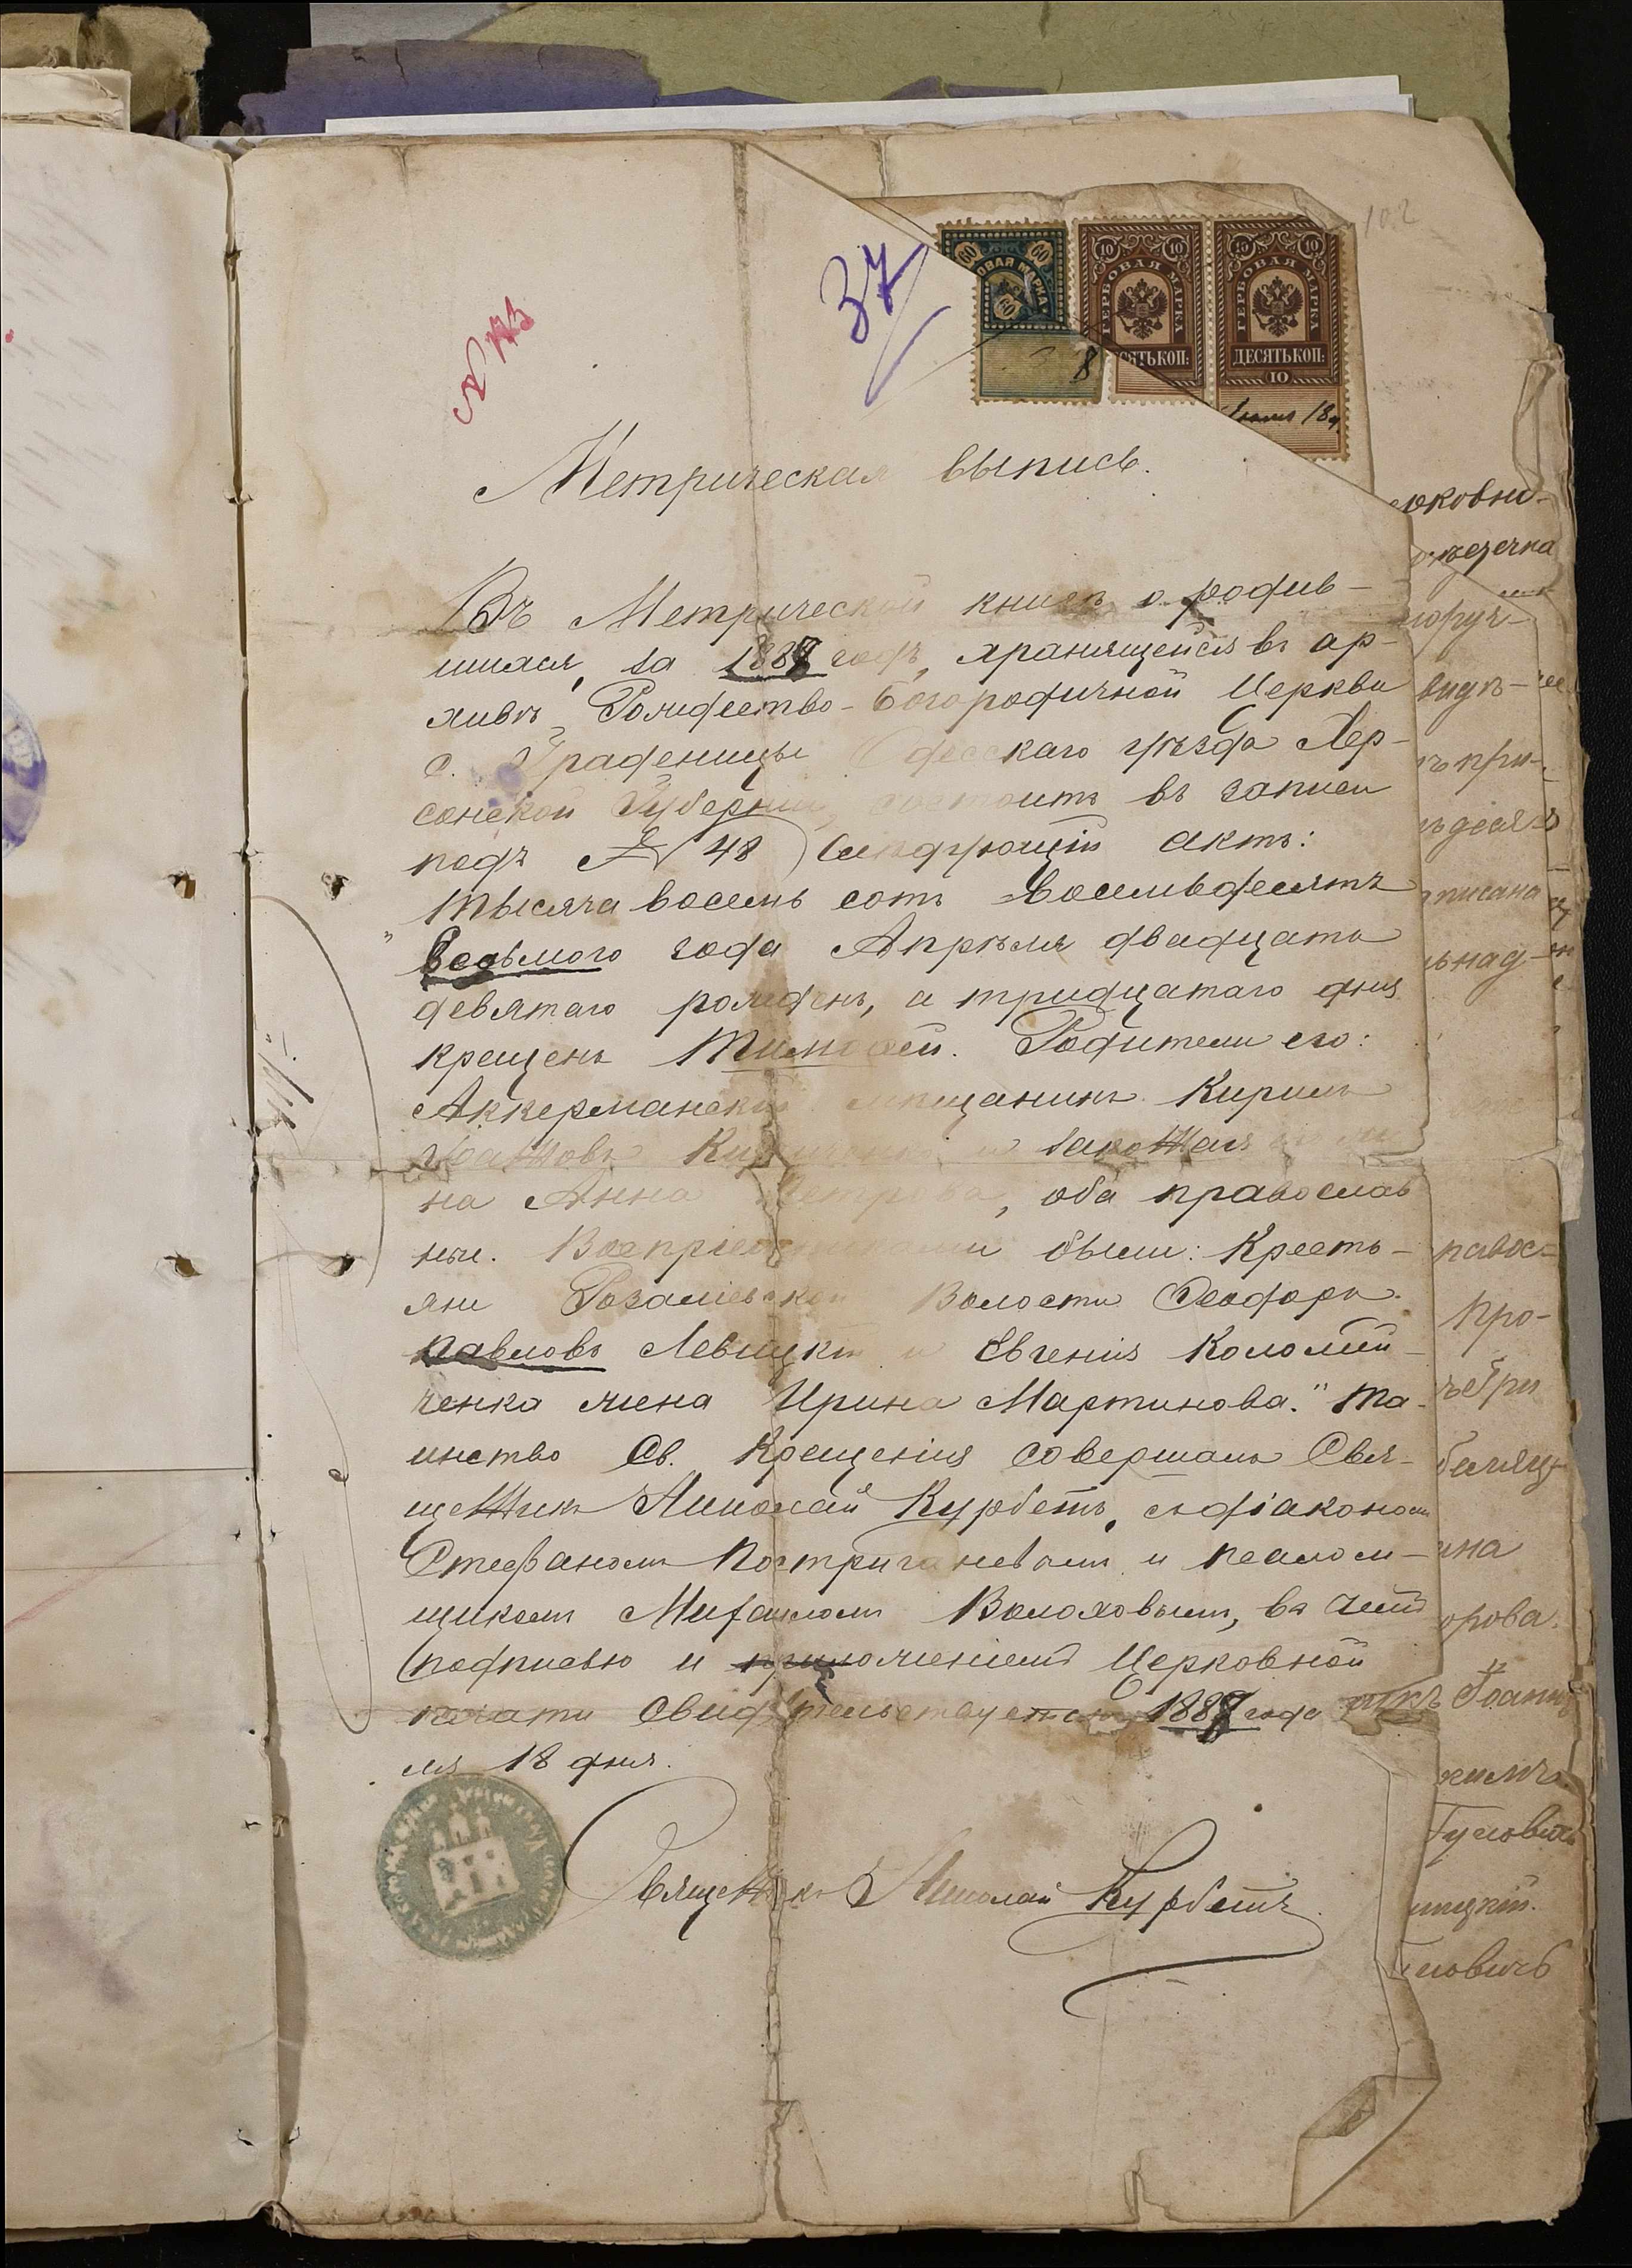 102
37
№ 113
60 60
ОВАЯ МАРКА
60
8
10 10
ГЕРБОВАЯ МАРКА
СЯТЬ КОП:
10 10
ГЕРБОВАЯ МАРКА
ДЕСЯТЬ КОП:
10
18
Метрическая выпись.
Въ Метрической книгѣ о родив-
шихся, за 1887 годъ, хранящейся въ ар-
хивѣ Рождество-Богородичной Церкви
с. Граденицы Одесскаго уѣзда Хер-
сонской Губерніи, состоитъ въ записи
подъ № 48 слѣдующій актъ:
"Тысяча восемь сотъ восемьдесятъ
седьмого года Апрѣля двадцать
девятаго рожденъ, а тридцатаго дня
крещенъ Тимофей. Родители его:
Аккерманскій мѣщанинъ Кирилъ
и законная его же-
на Анна Петрова, оба православ
ные. Воспріемниками были: Кресть-
яне Розаліевской Волости Феодоръ
Павловъ Левицкій и Евгенія Коломій-
ченка жена Ирина Мартинова." Та-
инство Св. Крещенія совершалъ Свя-
щенникъ Николай Курбетъ, съ діакономъ
Стефаномъ и псалом-
щикомъ Михаиломъ Волоховымъ, въ чемъ
подписью и приложеніемъ Церковной
печати свидѣтельствуется 1887 года
ля 18 дня.
Священникъ Николай Курбетъ.